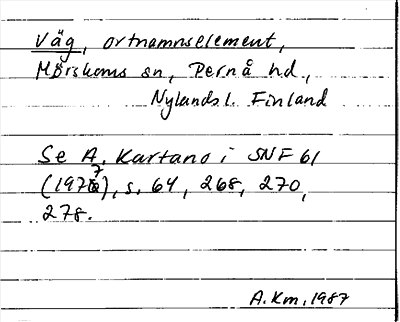 Väg, ortnamnselement,
Mörskoms sn, Pernå hd.,
Nylands l. Finland
Se A. Kartano i SNF 61
(1977), s. 64, 268, 270,
278.
A.Km, 1987